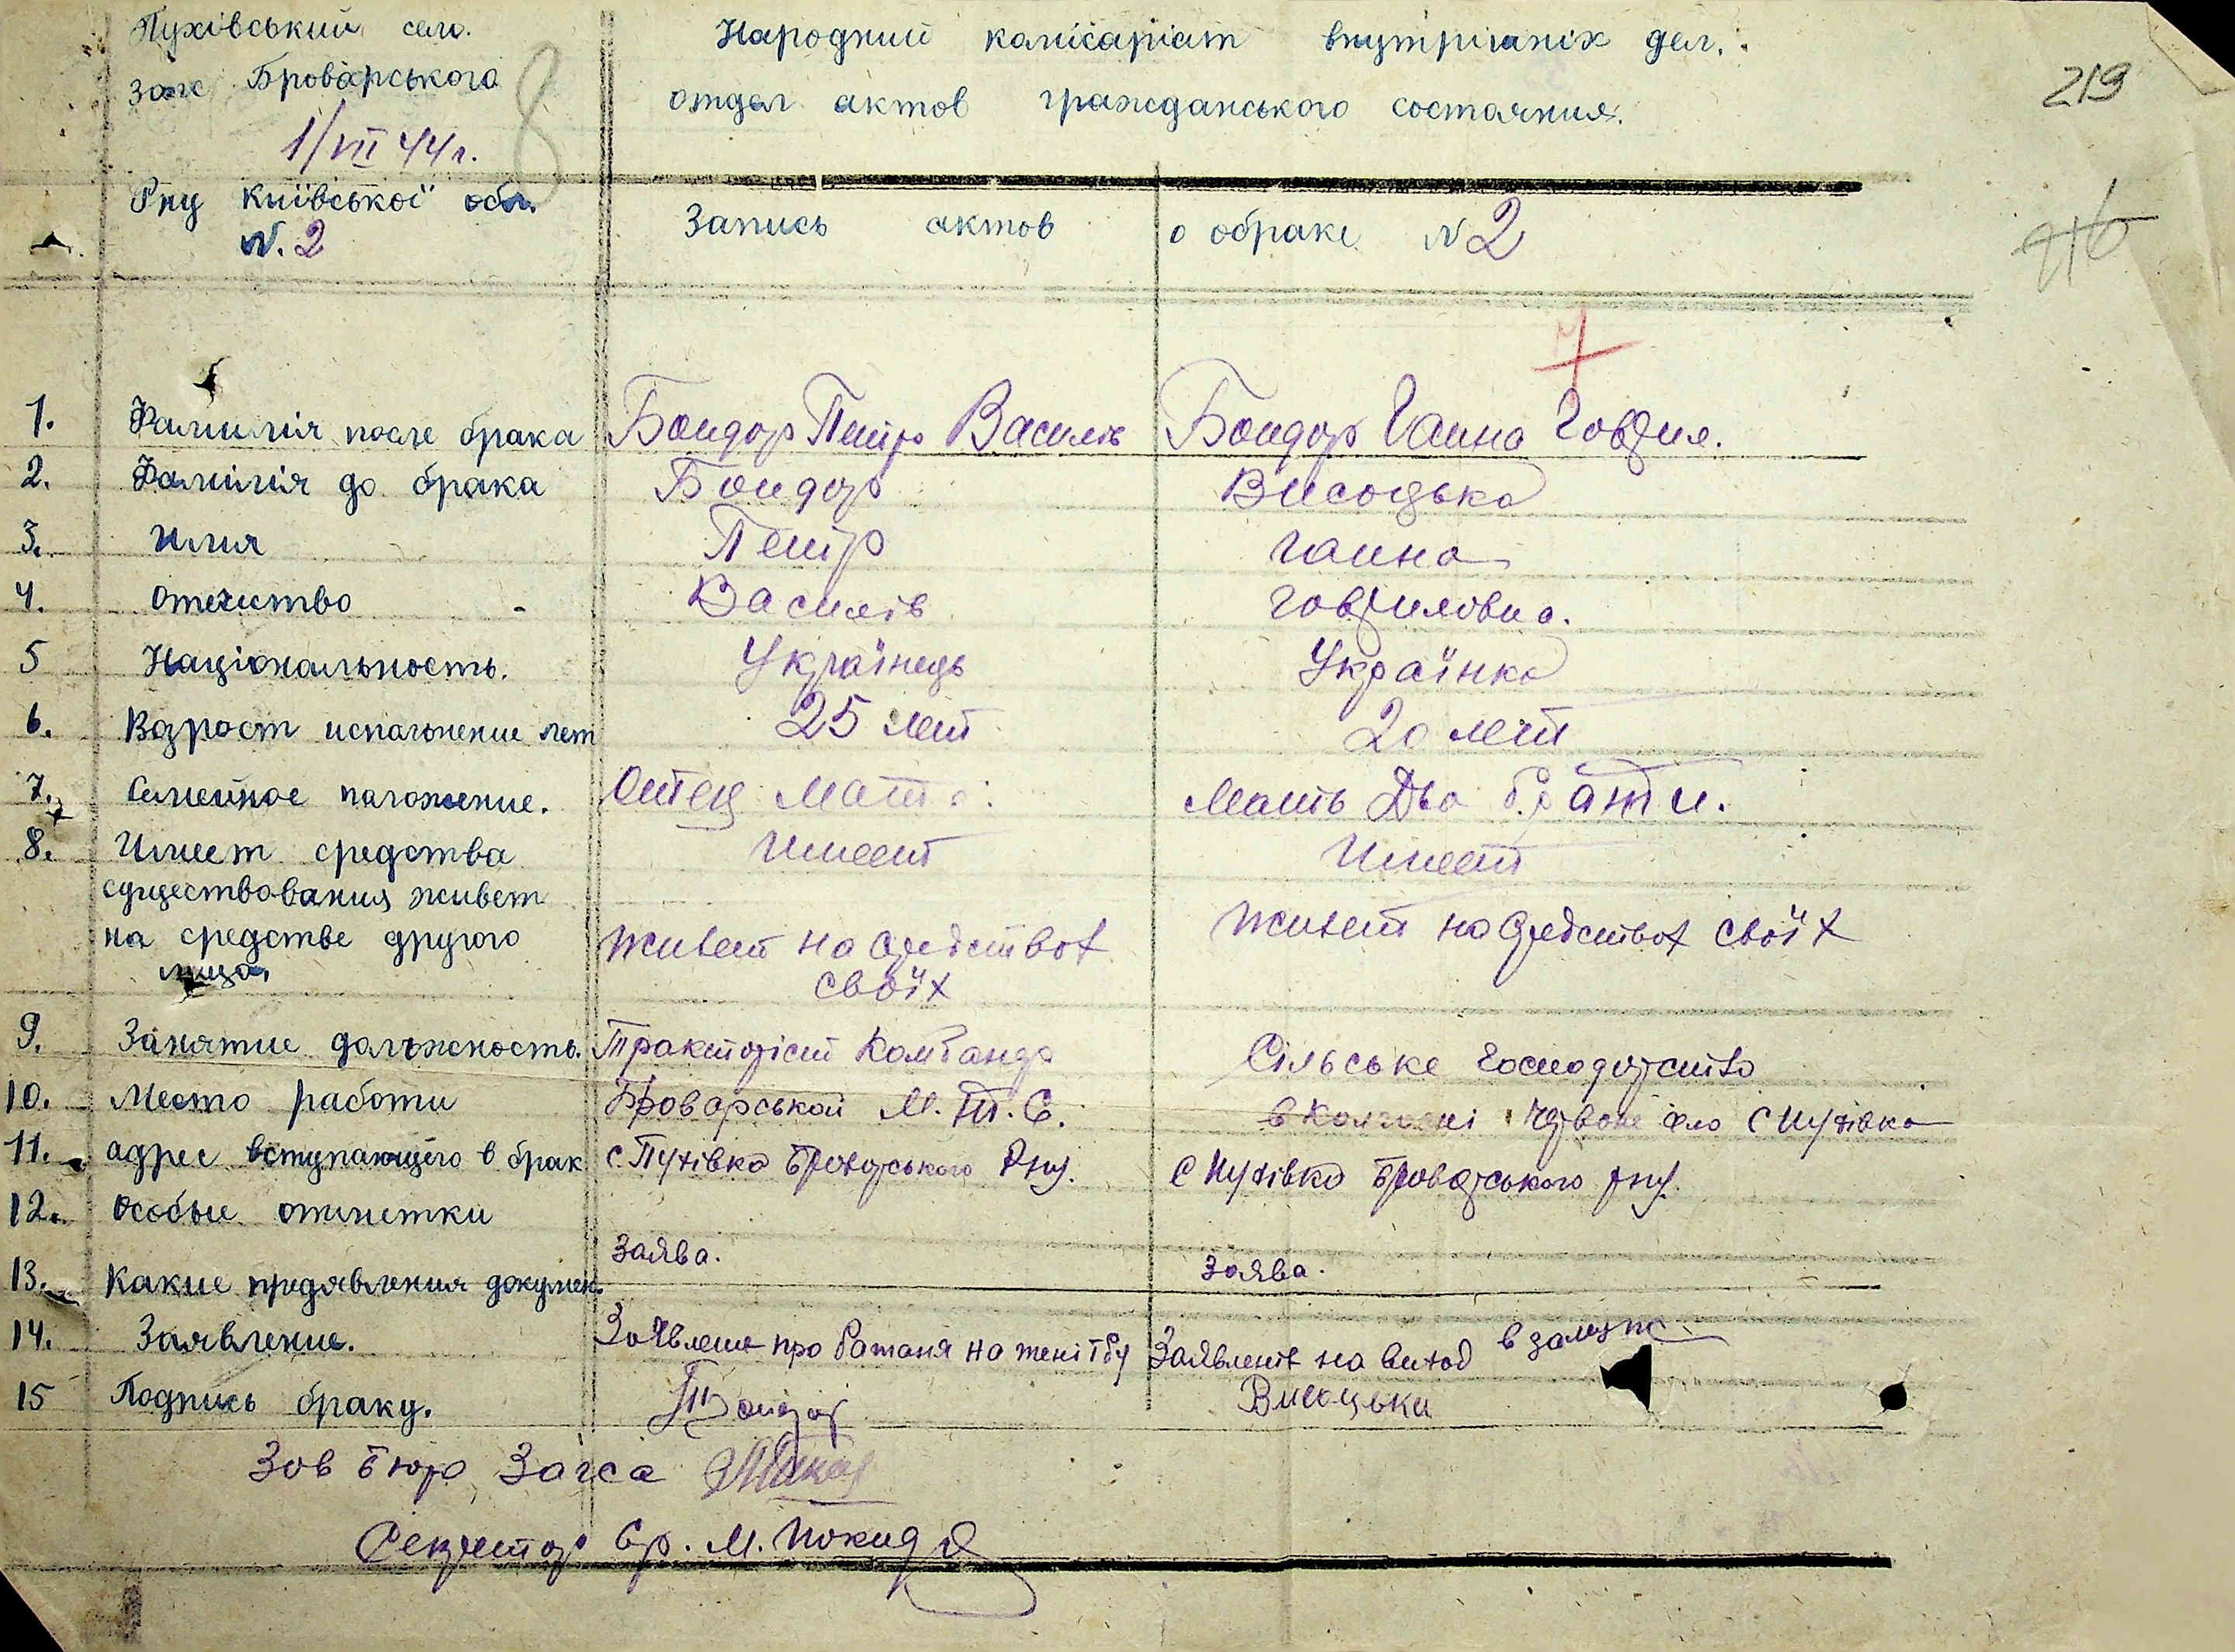 Пухівський село.
загс Броварського
1/VII 44 г.
Рну Київської обл.
N. 2
Народний комісаріат внутрішніх дел.
отдел актов гражданського состояния.
219
216
8
Запись актов о обраке N 2
1. Фамилія после брака Бондар Петро Василів Бондар Ганна Гаврил.
2. Фамілія до брака Бондар Висоцька
3. Имя Петр Ганна
4. Отечство Василів Гавриловна.
5 Національность. Українець Українка
6. Возрост исполнение лет 25 лет 20 лет
7. Семейное положение. Отец Мать Мать Два брати.
8. Имеет средства Имеет Имеет
существования, живет
на средстве другого Живет на средствах Живет на средствах своїх
лица своїх
9. Занятие должность. Тракторіст Комбанер Сільське Господарство
10. Место работи Броварськой М.Т.С. в колгоспі Червоне село с Пухівка
11. адрес вступающего в брак с. Пухівка Броварського Рну. с Пухівка Броварського рну.
12. Особые отметки
Заява. Заява.
13. Какие предявления докумен.
14. Заявление. Заявлене про бажаня на женітбу Заявленія на виход в замуж
15 Подпись браку. Бондар Висоцька
Зав бюро Загса
Секретар Ср. М. Покид